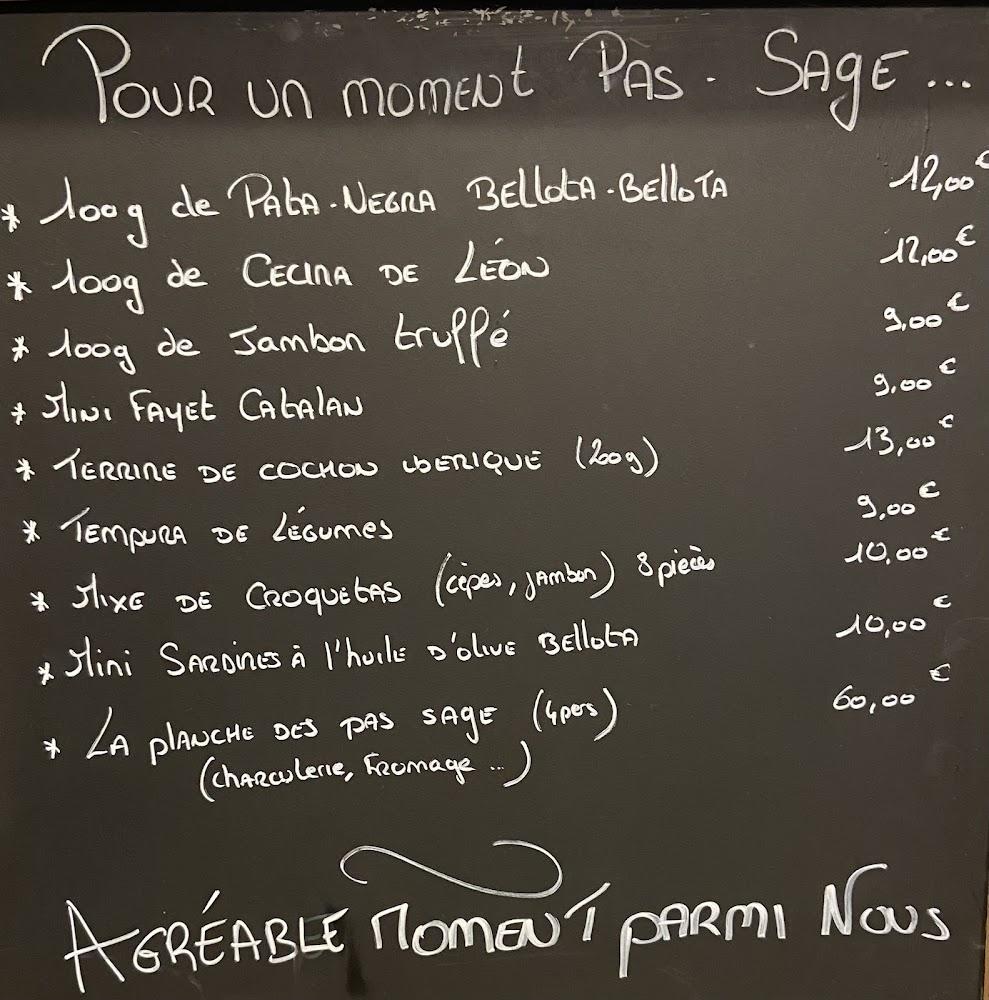 Pour un moment Pas-Sage...
* 100g de Pata-Negra Bellota-Bellota 12,00€
* 100g de Cecina de Léon 12,00€
* 100g de Jambon truffé 9,00€
* Mini Fayet Catalan 9,00€
* Terrine de cochon iberique (200g) 13,00€
* Tempura de légumes 9,00€
* Mixe de Croquetas (cèpes, jambon) 8 pièces 10,00€
* Mini Sardines à l'huile d'olive Bellota 10,00€
* La planche des pas sage (4pers) 60,00€
(charcuterie, Fromage...)
Agréable moment parmi Nous